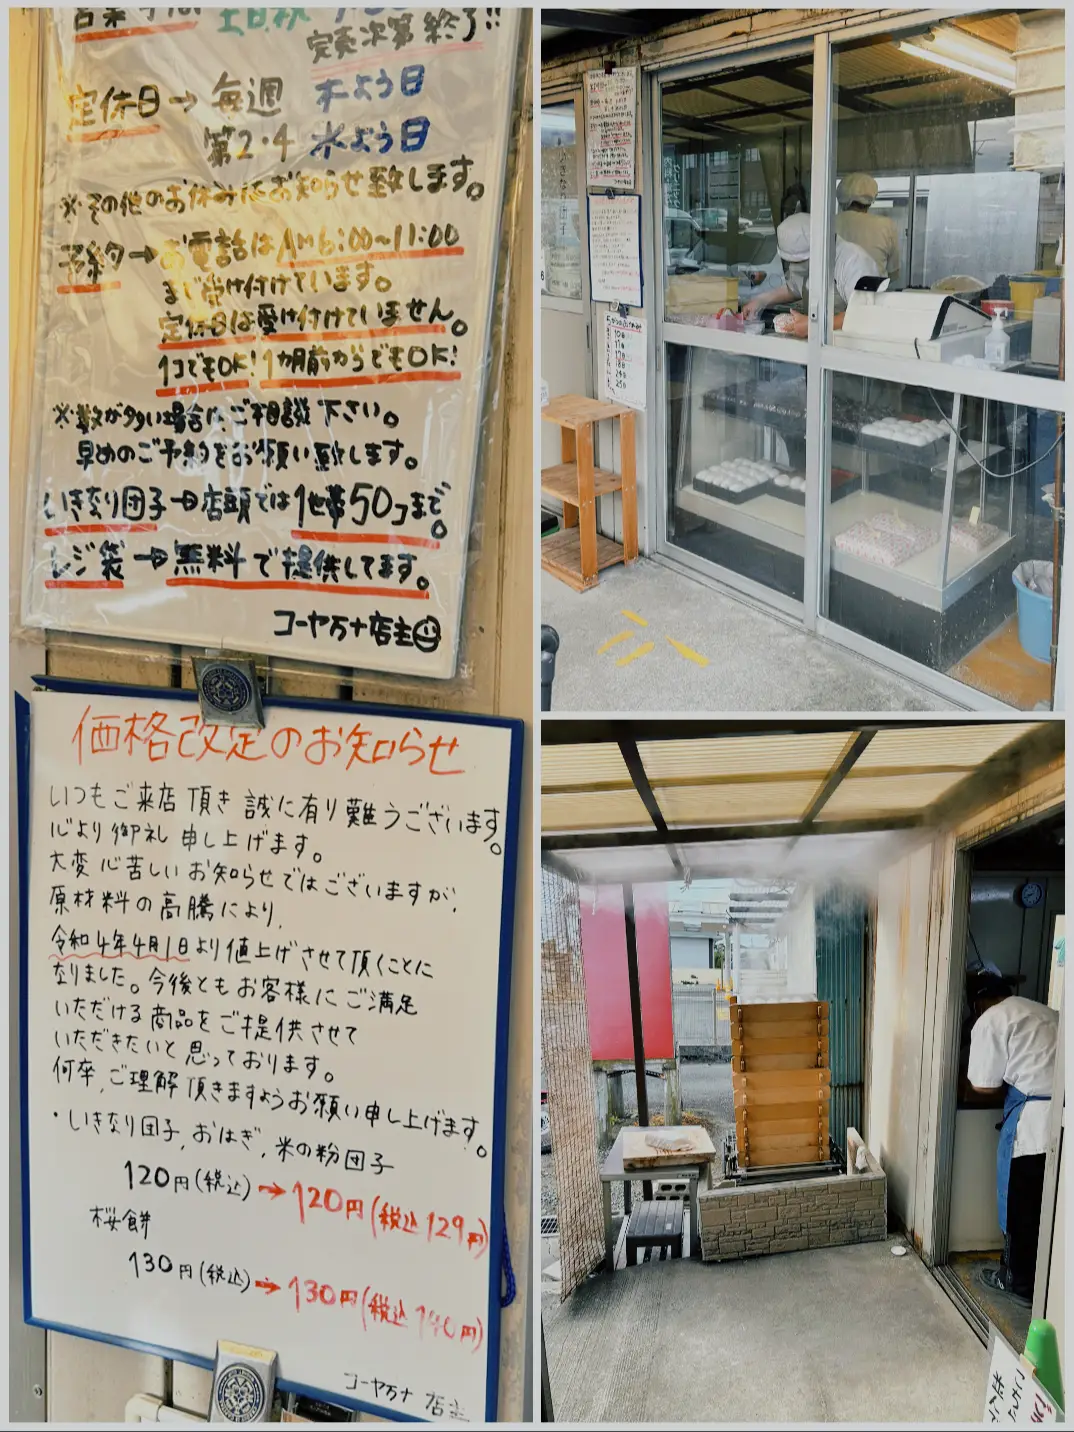 営業時間 土日祝
完売次第終了!!
定休日→毎週 木よう日
第2・4 水よう日
※その他のお休みはお知らせ致します。
予約→お電話はAM6:00~11:00
まで受け付けています。
定休日は受け付けていません。
1コでもOK!1カ月前からでもOK!
※数が多い場合は、ご相談下さい。
早めのご予約をお願い致します。
いきなり団子→店頭では1世帯50コまで。
レジ袋→無料で提供してます。
コーヤ万十店主
価格改定のお知らせ
いつもご来店頂き誠に有り難うございます。
心より御礼申し上げます。
大変心苦しいお知らせではございますが、
原材料の高騰により、
令和4年4月1日より値上げさせて頂くことに
なりました。今後ともお客様にご満足
いただける商品をご提供させて
いただきたいと思っております。
何卒、ご理解頂きますようお願い申し上げます。
・いきなり団子、おはぎ、米の粉団子
120円(税込)→120円(税込129円)
桜餅
130円(税込)→130円(税込140円)
コーヤ万十 店主